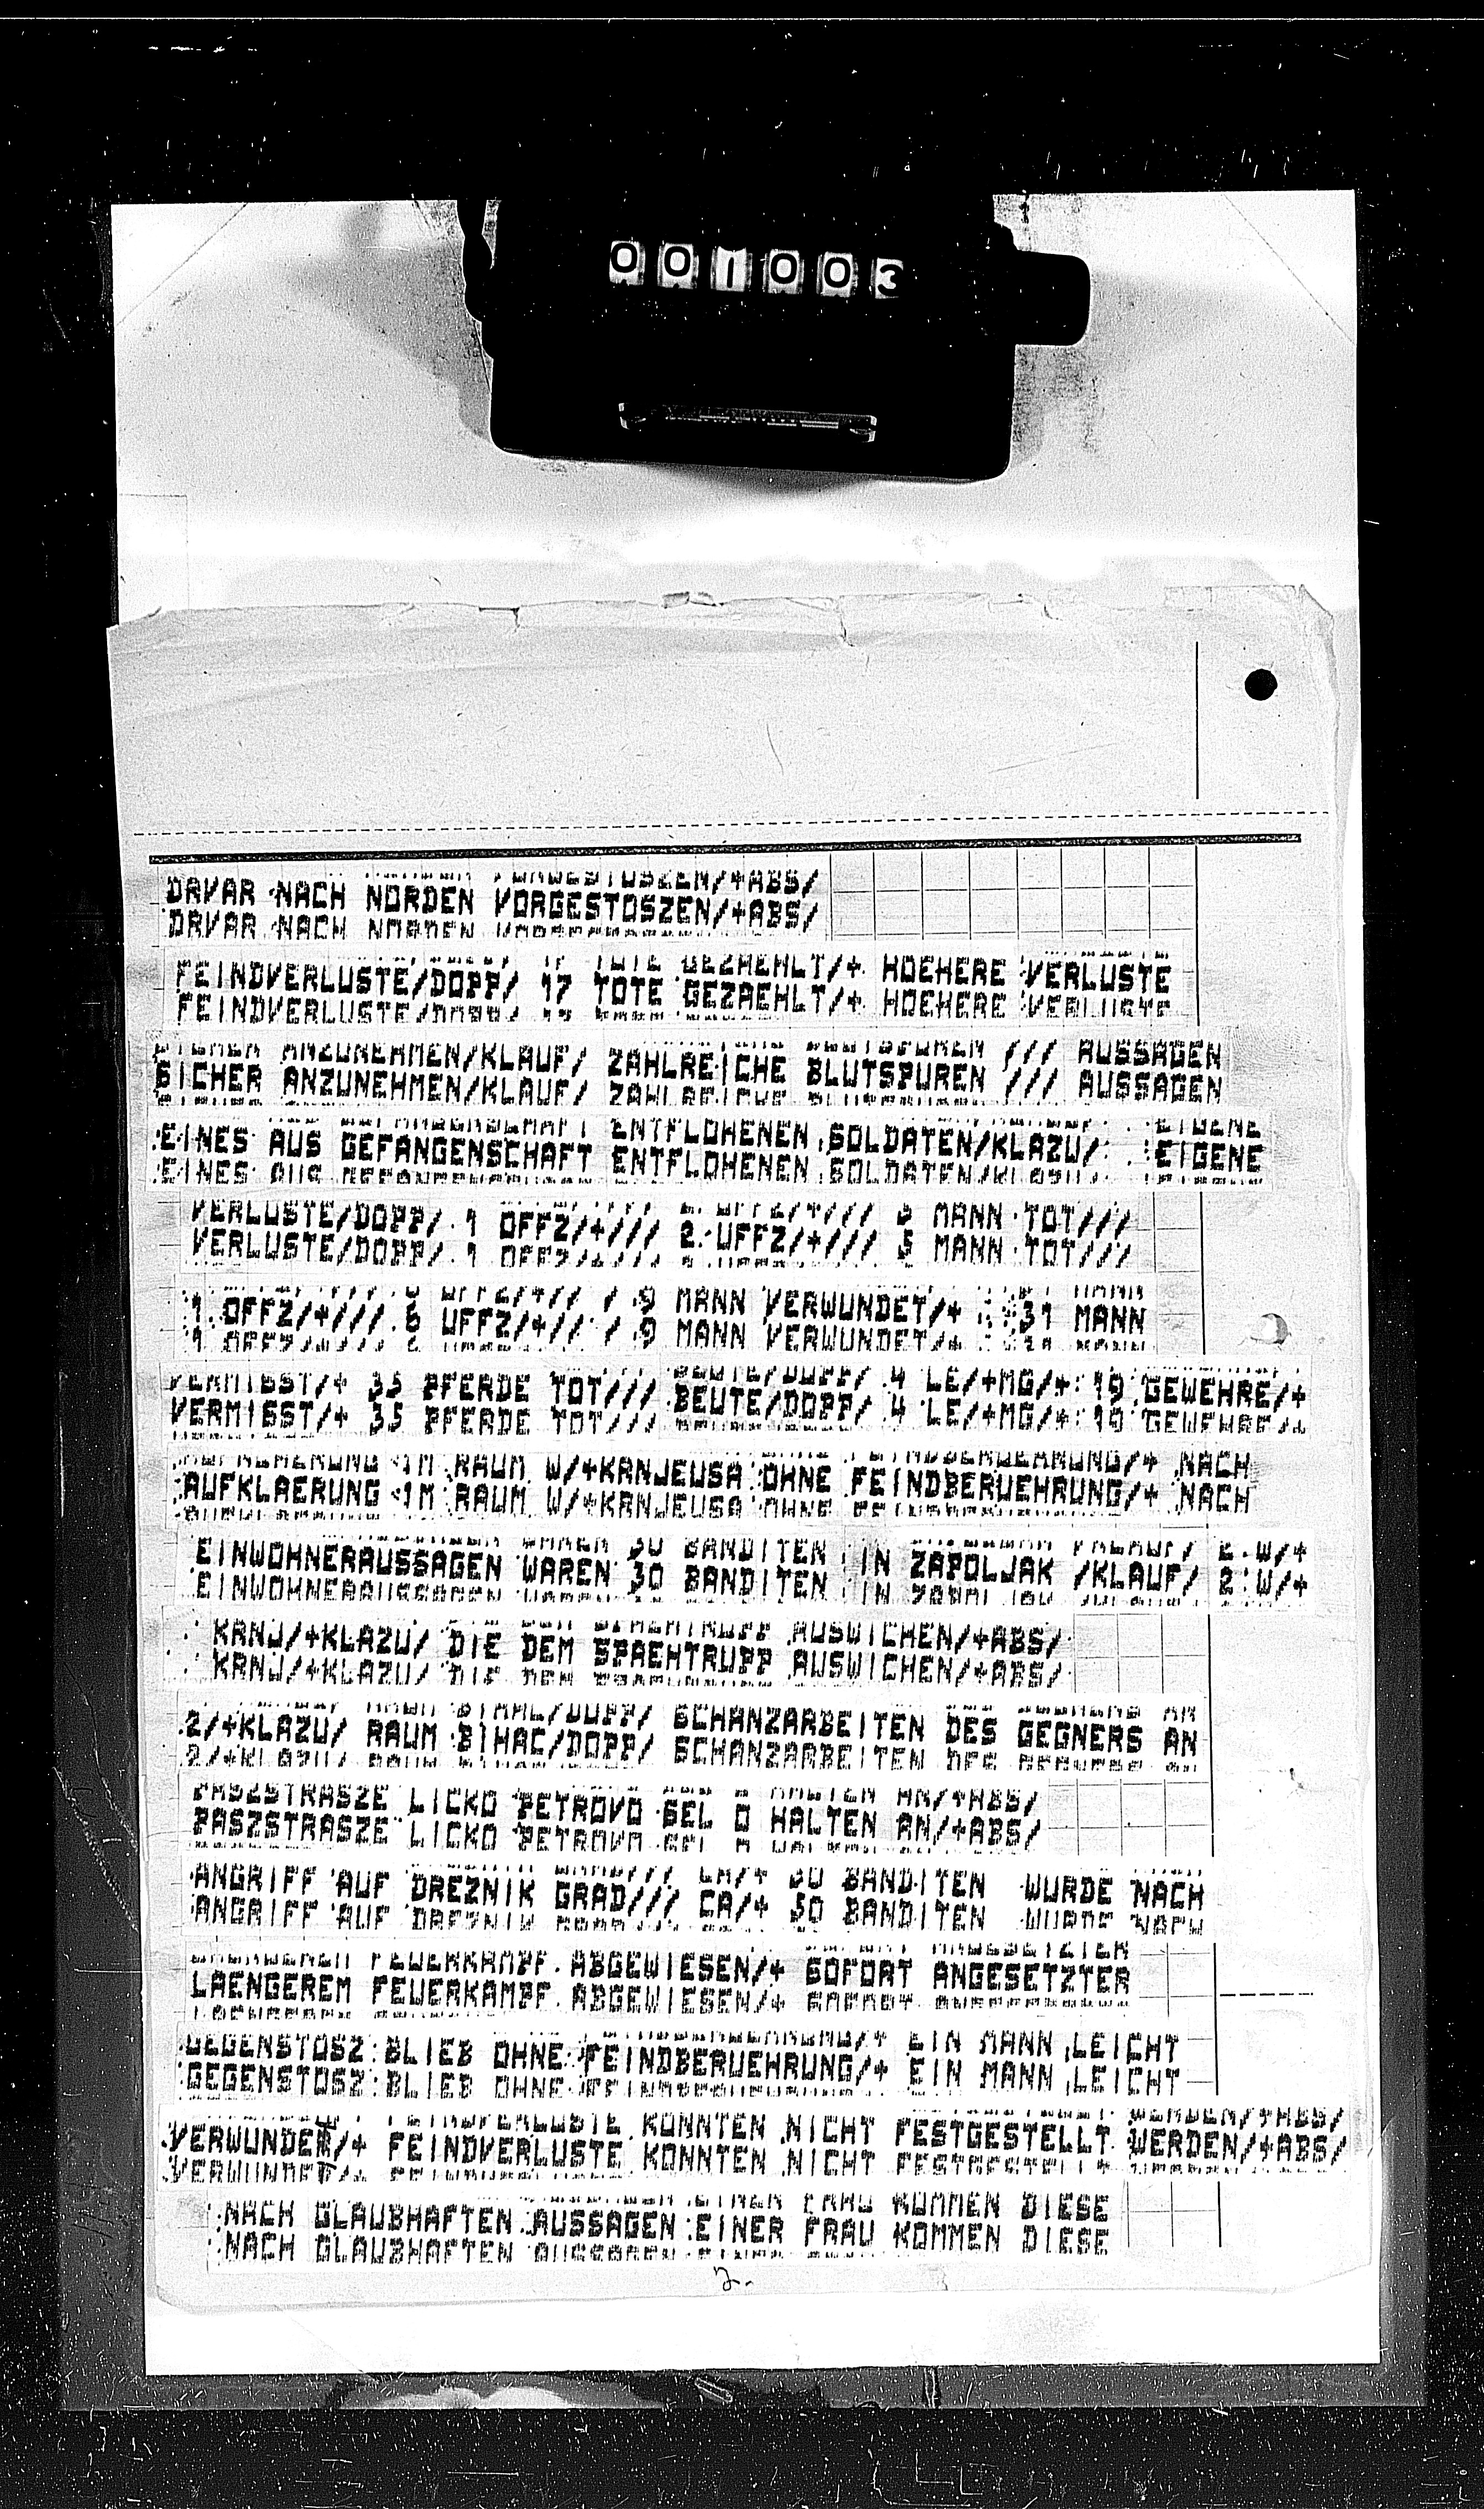 001003
DRVAR NACH NORDEN VORGESTOSZEN/+ABS/
FEINDVERLUSTE/DOPP/ 17 TOTE GEZAEHLT/+ HOEHERE VERLUSTE
SICHER ANZUNEHMEN/KLAUF/ ZAHLREICHE BLUTSPUREN /// AUSSAGEN
EINES AUS GEFANGENSCHAFT ENTFLOHENEN SOLDATEN/KLAZU/ EIGENE
VERLUSTE/DOPP/ 1 OFFZ/+/// 2 UFFZ/+/// 5 MANN TOT///
1 OFFZ/+/// 6 UFFZ/+// / 9 MANN VERWUNDET/+ 31 MANN
VERMISST/+ 35 PFERDE TOT/// BEUTE/DOPP/ 4 LE/+MG/+ 19 GEWEHRE/+
AUFKLAERUNG IM RAUM W/+KRNJEUSA OHNE FEINDBERUEHRUNG/+ NACH
EINWOHNERAUSSAGEN WAREN 30 BANDITEN IN ZAPOLJAK /KLAUF/ 2 W/+
KRNJ/+KLAZU/ DIE DEM SPAEHTRUPP AUSWICHEN/+ABS/
2/+KLAZU/ RAUM BIHAC/DOPP/ SCHANZARBEITEN DES GEGNERS AN
PASZSTRASZE LICKO PETROVO SEL O HALTEN AN/+ABS/
ANGRIFF AUF DREZNIK GRAD/// CA/+ 50 BANDITEN WURDE NACH
LAENGEREM FEUERKAMPF ABGEWIESEN/+ SOFORT ANGESETZTER
GEGENSTOSZ BLIEB OHNE FEINDBERUEHRUNG/+ EIN MANN LEICHT
VERWUNDET/+ FEINDVERLUSTE KONNTEN NICHT FESTGESTELLT WERDEN/+ABS/
NACH GLAUBHAFTEN AUSSAGEN EINER FRAU KOMMEN DIESE
2.